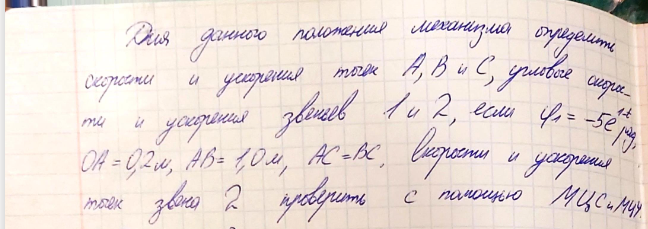 Для данного положения механизма определить
скорости и ускорения точек A, B и C, угловые скорос-
ти и ускорения звеньев 1 и 2, если φ₁ = -5e^{1-t} рад,
OA = 0,2 м, AB = 1,0 м, AC = BC. Скорости и ускорения
точек звена 2 проверить с помощью МЦС и МЦУ.